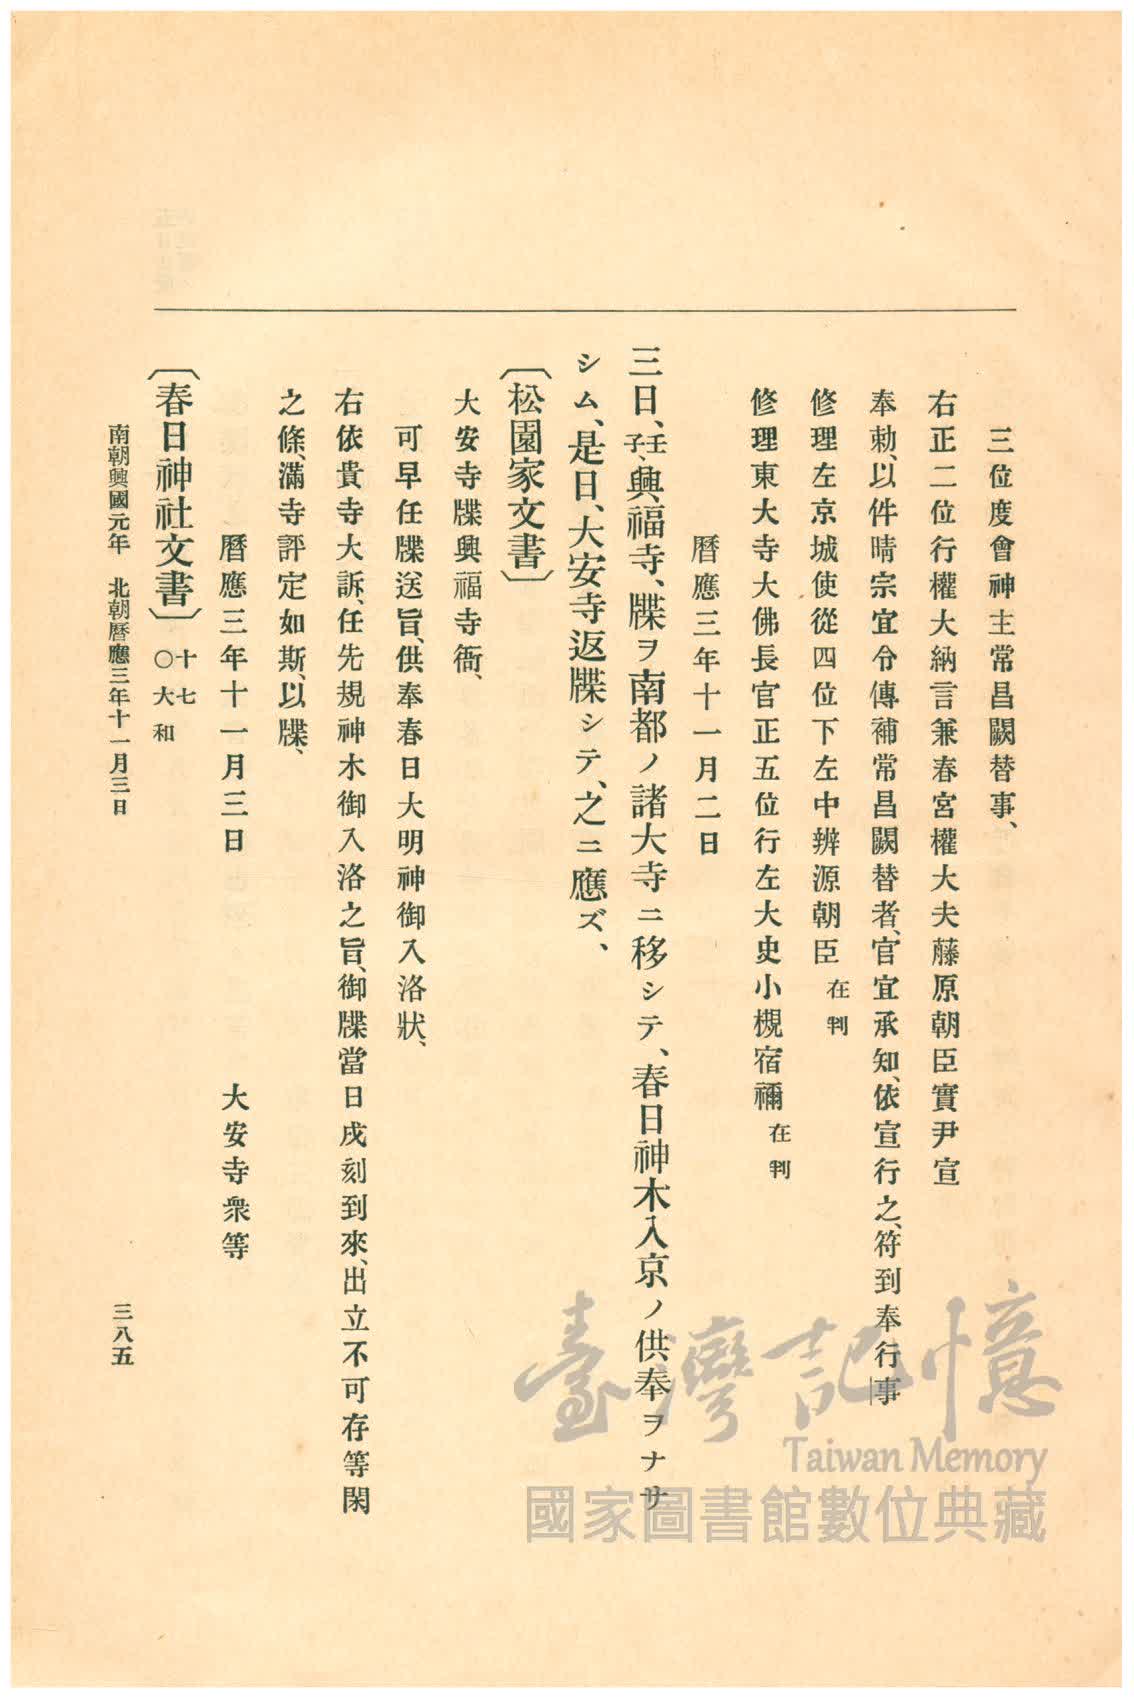 三位度會神主常昌闕替事、
右正二位行權大納言兼春宮權大夫藤原朝臣實尹宣
奉勅、以件晴宗宜令傳補常昌闕替者、官宜承知、依宣行之、符到奉行事
修理左京城使從四位下左中辨源朝臣 在判
修理東大寺大佛長官正五位行左大史小槻宿禰 在判
曆應三年十一月二日
三日、壬子、興福寺、牒ヲ南都ノ諸大寺ニ移シテ、春日神木入京ノ供奉ヲナサ
シム、是日、大安寺返牒シテ、之ニ應ズ、
〔松園家文書〕
大安寺牒興福寺衙、
可早任牒送旨、供奉春日大明神御入洛狀、
右依貴寺大訴、任先規神木御入洛之旨、御牒當日戌刻到來、出立不可存等閑
之條、滿寺評定如斯、以牒、
曆應三年十一月三日
大安寺衆等
〔春日神社文書〕 十七 〇大和
南朝興國元年 北朝曆應三年十一月三日
三八五
臺灣記憶
Taiwan Memory
國家圖書館數位典藏